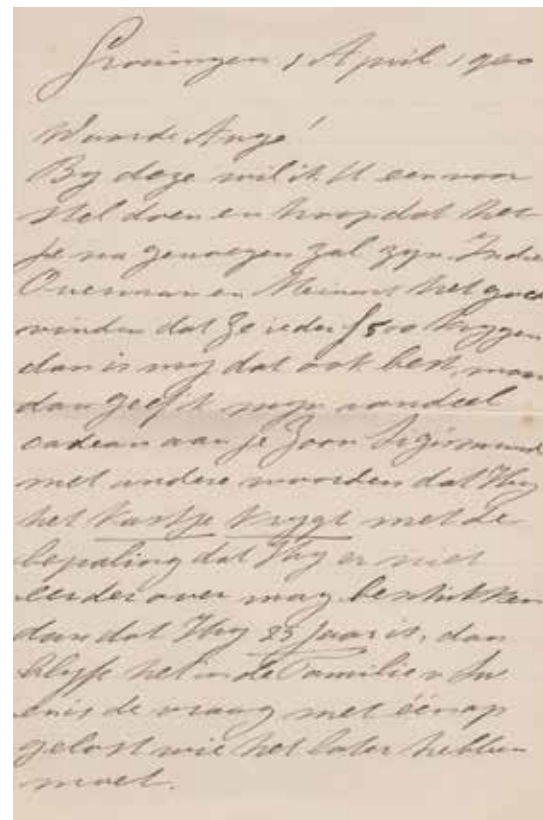 Groningen 1 April 1900
Waarde Ange!
By deze wil ik U een voor
stel doen en hoop dat het
je na genoegen zal zyn. Indien
Overman en Meinart het goed
vinden dat ze ieder f500 krygen
dan is my dat ook best, maar
dan geef ik myn aandeel
cadeau aan je Zoon Sigismund
met andere woorden dat Hy
het Kastje Krygt met de
bepaling dat Hy er niet
eerder over mag beschikken
dan dat Hy 25 Jaar is, dan
blyft het in de Familie v In
en is de vraag met éénop
gelost wie het later hebben
moet.